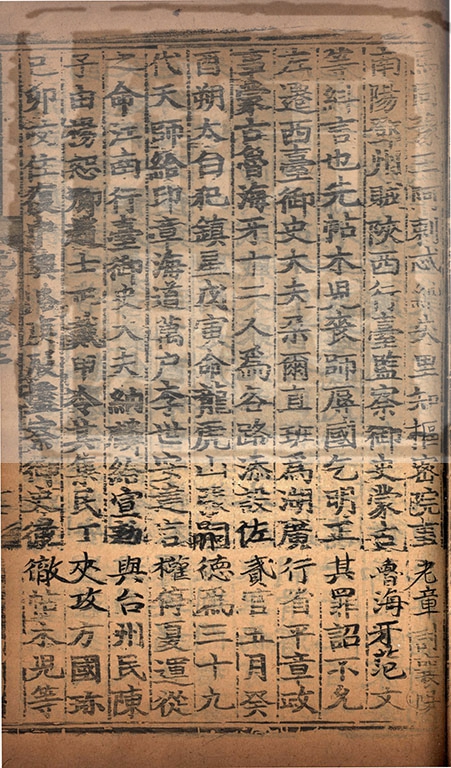 剌忒納失里知樞密院事老章
南陽鄧州賊陝西行臺監察御史蒙古魯海牙范文
等糾言也先帖木兒喪師辱國乞明正其罪詔不允
左遷西臺御史大夫朶爾直班爲湖廣行省平章政
事蒙古魯海牙十二人爲各路添設佐貳官五月癸
酉朔太白犯鎮星戊寅命龍虎山張嗣德爲三十九
代天師給印章海道萬户李世安建言權停夏運從
之命江南行臺御史大夫納麟給宣勑與台州民陳
子由楊恕卿趙士正戴甲令其集民丁夾攻方國珍
己卯咬住復中興路庚辰監察御史徹徹帖木兒等